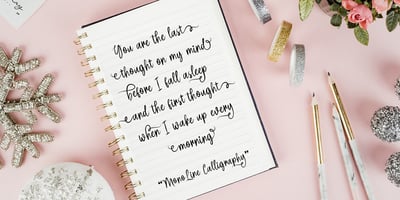 You are the last
thought on my mind
before I fall asleep
and the first thought
when I wake up every
morning
"Mono Line Calligraphy"